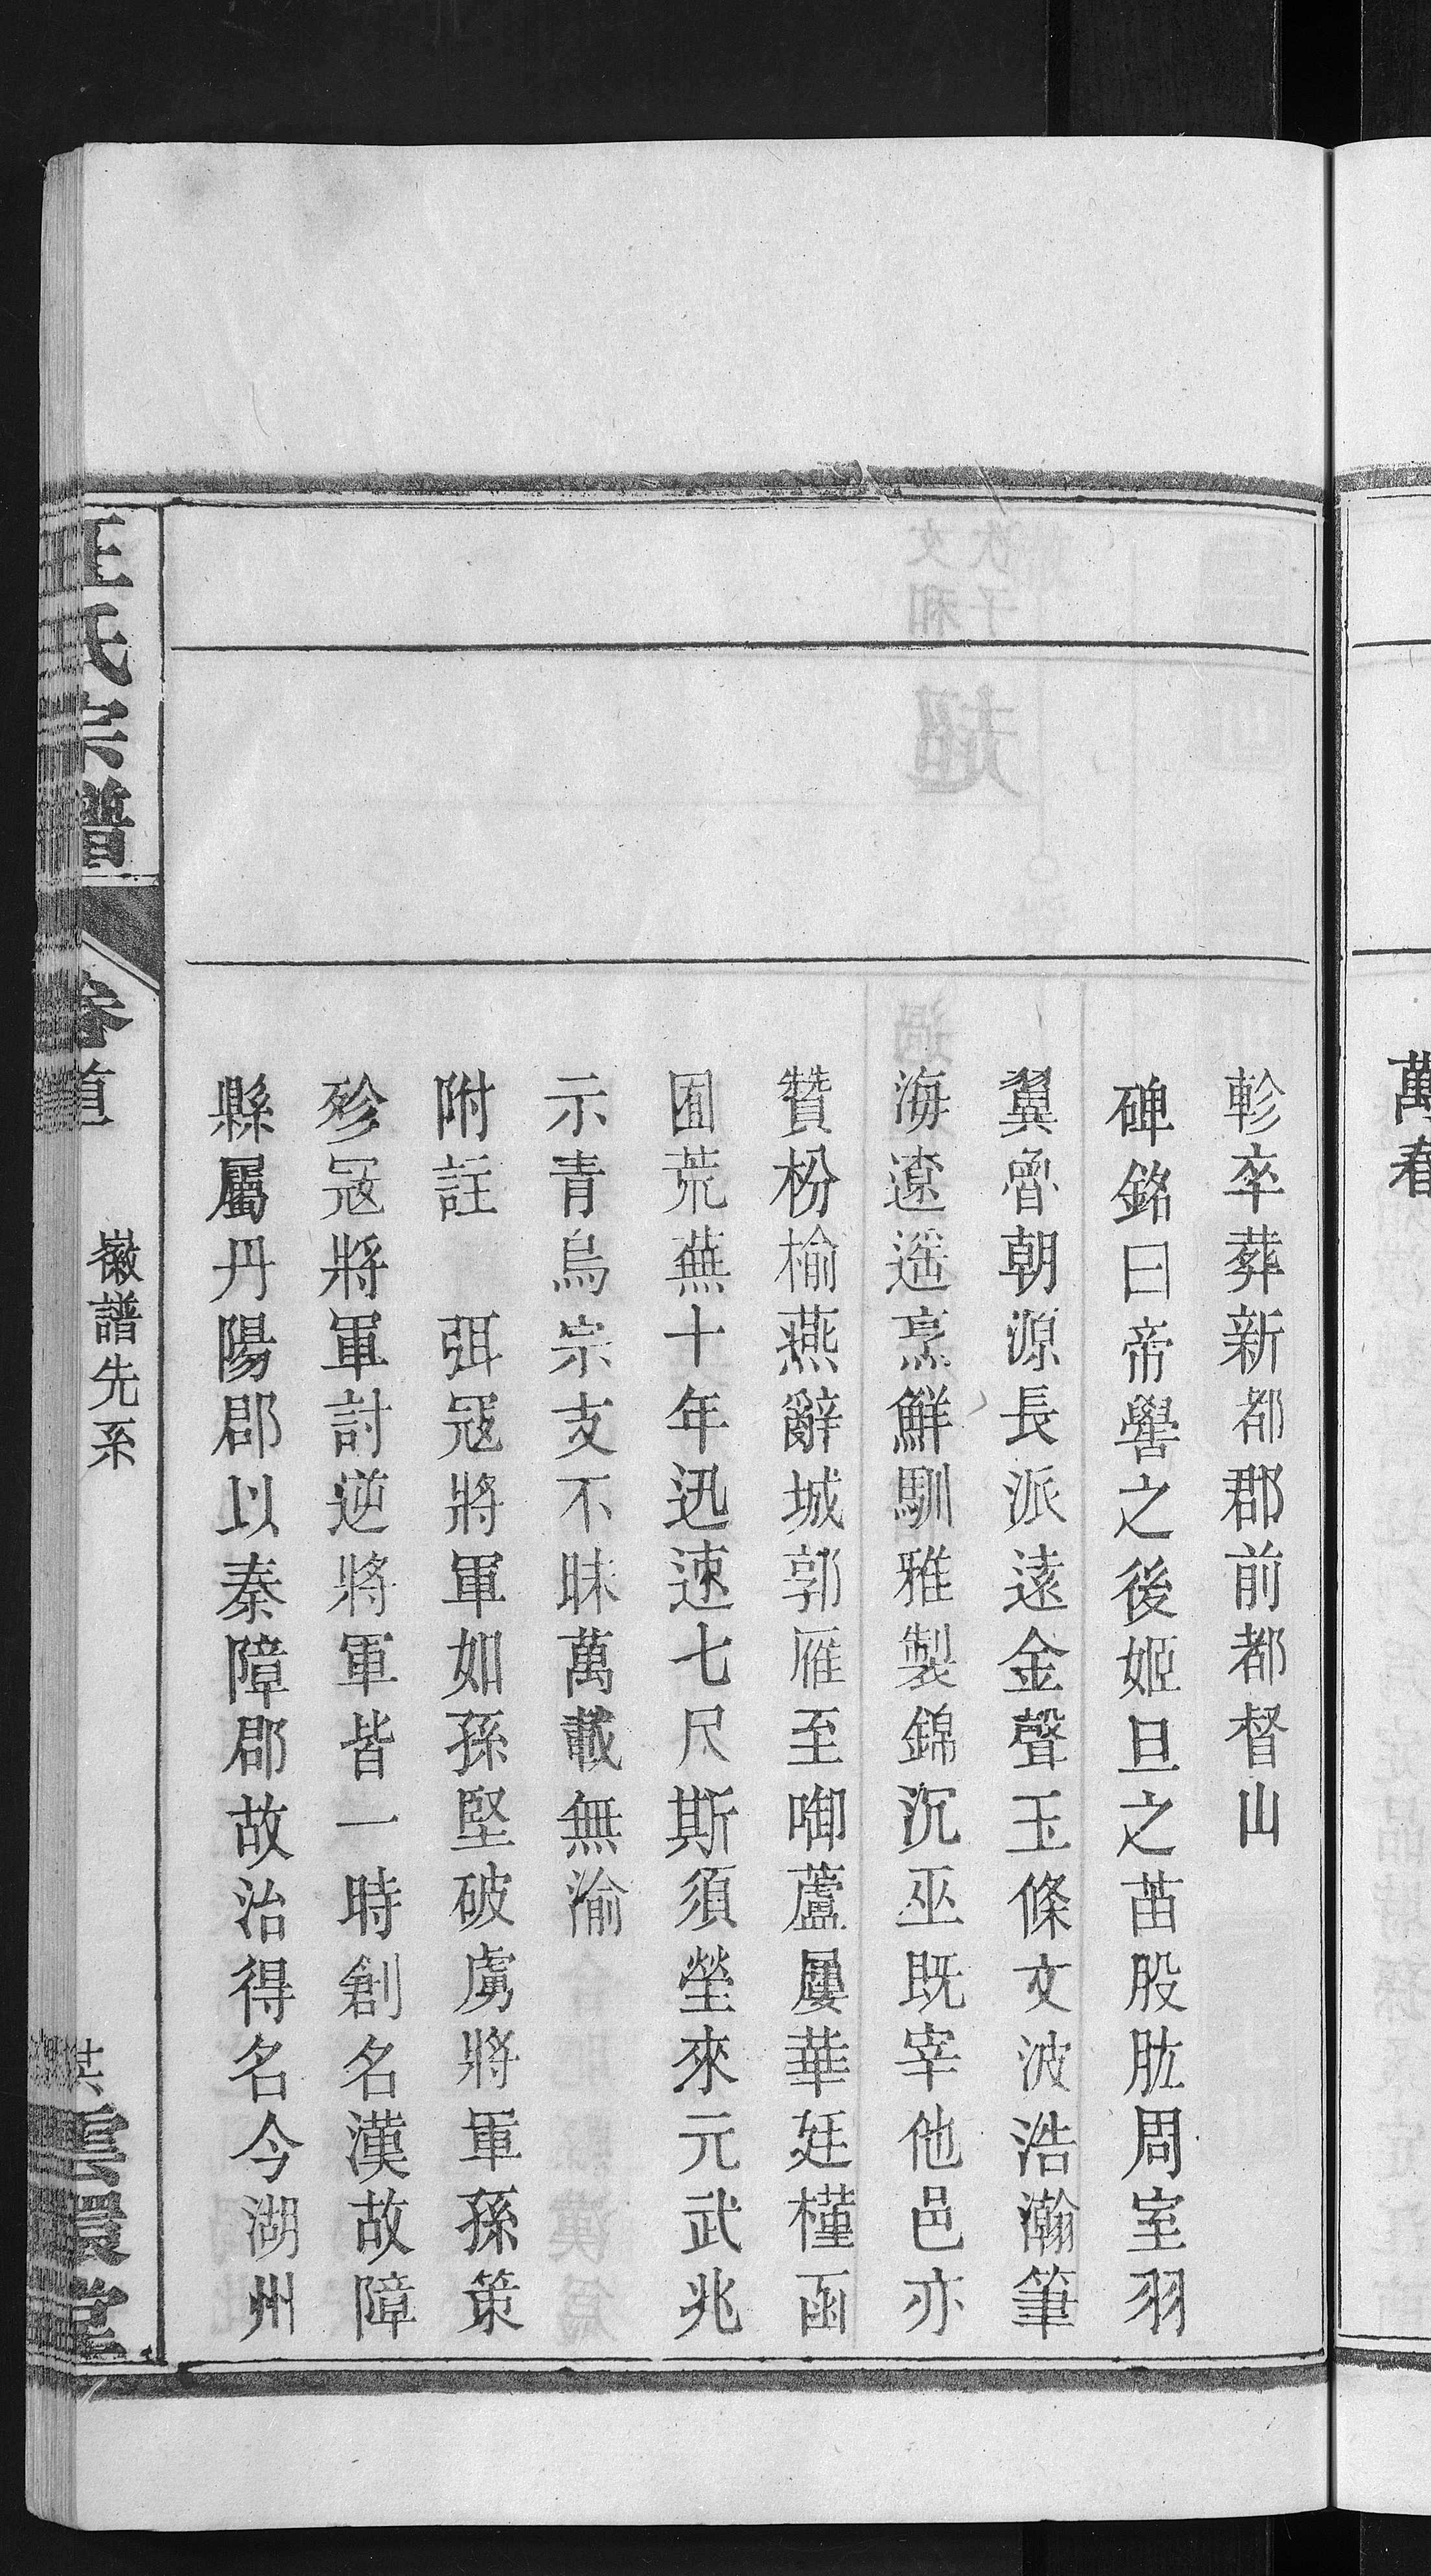 萬春
軫卒葬新都郡前都督山
碑銘曰帝嚳之後姬旦之苗股肱周室羽
翼魯朝源長派遠金聲玉條文波浩瀚筆
海遼遥烹鮮馴雅製錦沉巫既宰他邑亦
贊枌榆燕辭城郭雁至啣蘆屢華廷槿函
囿荒蕪十年迅速七尺斯須塋來元武兆
示青烏宗支不昧萬載無渝
附註 弭寇將軍如孫堅破虜將軍孫策
殄寇將軍討逆將軍皆一時創名漢故障
縣屬丹陽郡以秦障郡故治得名今湖州
氏宗譜
卷首
徽譜先系
雲環堂